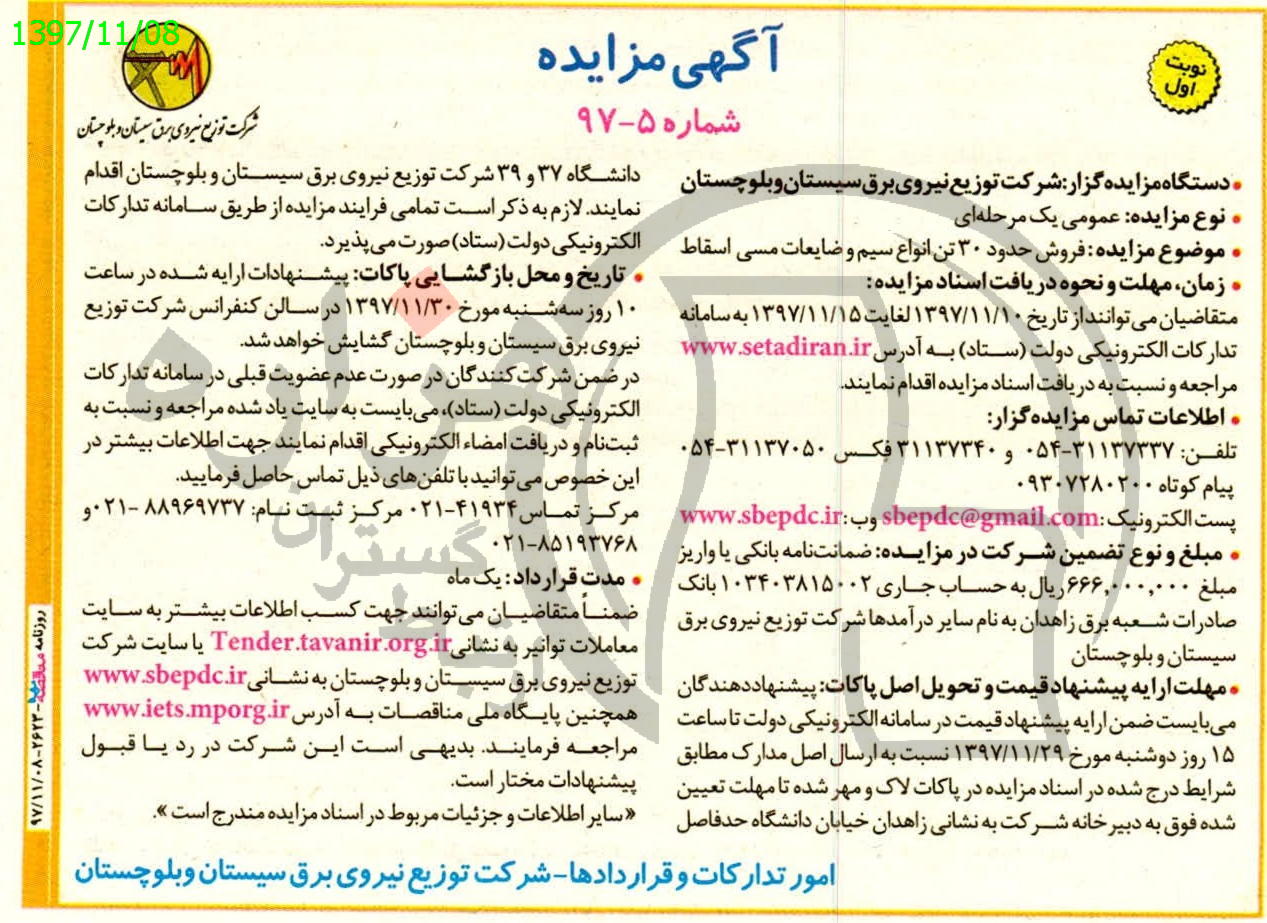 1397/11/08
شرکت توزیع نیروی برق سیستان و بلوچستان
آگهی مزایده
شماره ۵-۹۷
نوبت
اول
• دستگاه مزایده گزار: شرکت توزیع نیروی برق سیستان وبلوچستان
• نوع مزایده: عمومی یک مرحله‌ای
• موضوع مزایده: فروش حدود ۳۰ تن انواع سیم و ضایعات مسی اسقاط
• زمان، مهلت و نحوه دریافت اسناد مزایده:
متقاضیان می‌توانند از تاریخ ۱۳۹۷/۱۱/۱۰ لغایت ۱۳۹۷/۱۱/۱۵ به سامانه
تدارکات الکترونیکی دولت (ستاد) به آدرس www.setadiran.ir
مراجعه و نسبت به دریافت اسناد مزایده اقدام نمایند.
• اطلاعات تماس مزایده گزار:
تلفن: ۳۱۱۳۷۳۳۷-۰۵۴ و ۳۱۱۳۷۳۴۰ فکس ۳۱۱۳۷۰۵۰-۰۵۴
پیام کوتاه ۰۹۳۰۷۲۸۰۲۰۰
پست الکترونیک: sbepdc@gmail.com وب: www.sbepdc.ir
• مبلغ و نوع تضمین شرکت در مزایده: ضمانت‌نامه بانکی یا واریز
مبلغ ۶۶۶,۰۰۰,۰۰۰ ریال به حساب جاری ۱۰۳۴۰۳۸۱۵۰۰۲ بانک
صادرات شعبه برق زاهدان به نام سایر درآمدها شرکت توزیع نیروی برق
سیستان و بلوچستان
• مهلت ارایه پیشنهاد قیمت و تحویل اصل پاکات: پیشنهاددهندگان
می‌بایست ضمن ارایه پیشنهاد قیمت در سامانه الکترونیکی دولت تا ساعت
۱۵ روز دوشنبه مورخ ۱۳۹۷/۱۱/۲۹ نسبت به ارسال اصل مدارک مطابق
شرایط درج شده در اسناد مزایده در پاکات لاک و مهر شده تا مهلت تعیین
شده فوق به دبیرخانه شرکت به نشانی زاهدان خیابان دانشگاه حدفاصل
دانشگاه ۳۷ و ۳۹ شرکت توزیع نیروی برق سیستان و بلوچستان اقدام
نمایند. لازم به ذکر است تمامی فرایند مزایده از طریق سامانه تدارکات
الکترونیکی دولت (ستاد) صورت می‌پذیرد.
• تاریخ و محل بازگشایی پاکات: پیشنهادات ارایه شده در ساعت
۱۰ روز سه‌شنبه مورخ ۱۳۹۷/۱۱/۳۰ در سالن کنفرانس شرکت توزیع
نیروی برق سیستان و بلوچستان گشایش خواهد شد.
در ضمن شرکت‌کنندگان در صورت عدم عضویت قبلی در سامانه تدارکات
الکترونیکی دولت (ستاد)، می‌بایست به سایت یاد شده مراجعه و نسبت به
ثبت‌نام و دریافت امضاء الکترونیکی اقدام نمایند جهت اطلاعات بیشتر در
این خصوص می‌توانید با تلفن‌های ذیل تماس حاصل فرمایید.
مرکز تماس ۴۱۹۳۴-۰۲۱ مرکز ثبت نام: ۸۸۹۶۹۷۳۷ -۰۲۱ و
۸۵۱۹۳۷۶۸-۰۲۱
• مدت قرارداد: یک ماه
ضمناً متقاضیان می‌توانند جهت کسب اطلاعات بیشتر به سایت
معاملات توانیر به نشانی Tender.tavanir.org.ir یا سایت شرکت
توزیع نیروی برق سیستان و بلوچستان به نشانی www.sbepdc.ir
همچنین پایگاه ملی مناقصات به آدرس www.iets.mporg.ir
مراجعه فرمایند. بدیهی است این شرکت در رد یا قبول
پیشنهادات مختار است.
«سایر اطلاعات و جزئیات مربوط در اسناد مزایده مندرج است».
امور تدارکات و قراردادها- شرکت توزیع نیروی برق سیستان وبلوچستان
روزنامه مناقصه -۲۶۱۳-۹۷/۱۱/۰۸
هزاره
گستران